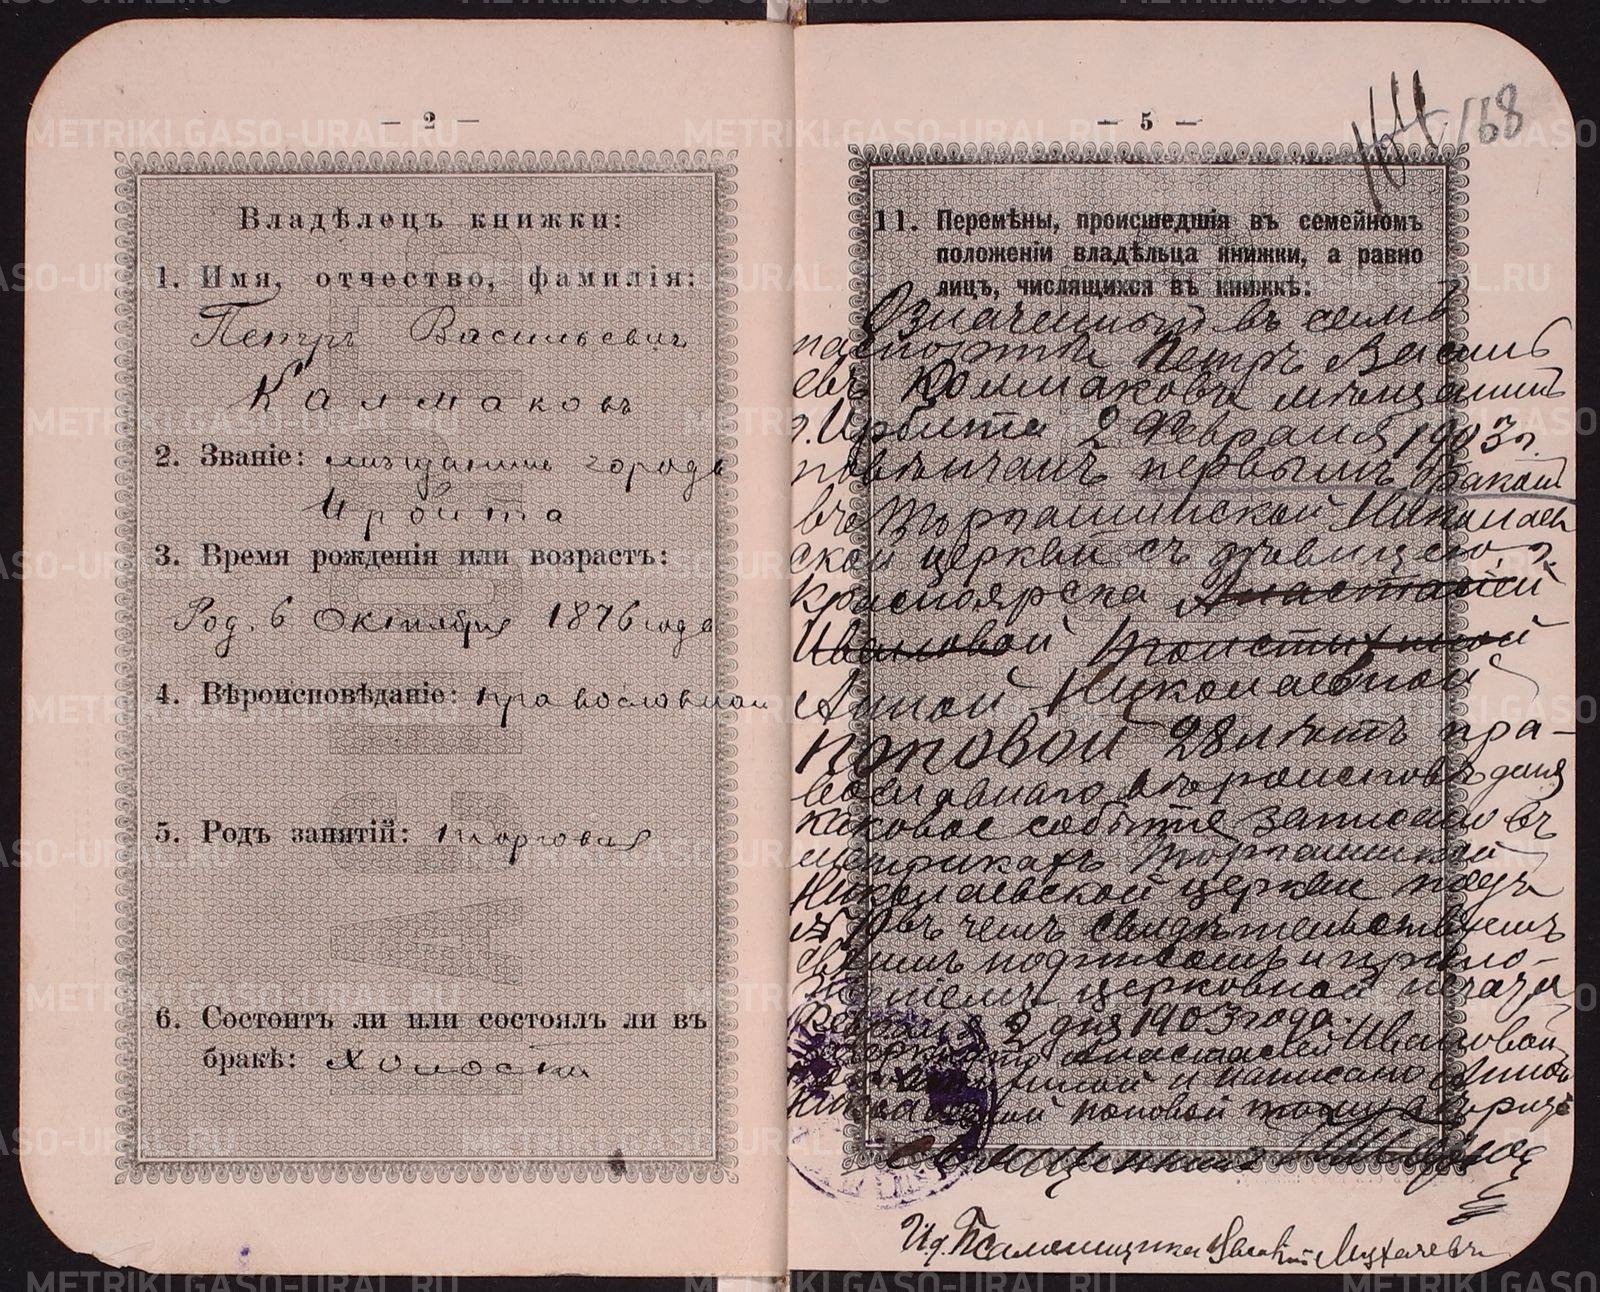 — 2 —
Владѣлецъ книжки:
1. Имя, отчество, фамилія:
Петръ Васильевич
Калмаковъ
2. Званіе: мѣщанинъ города
Ирбита
3. Время рожденія или возрастъ:
Род. 6 Октября 1876 года
4. Вѣроисповѣданіе: православнаго
5. Родъ занятій: торговля
6. Состоитъ ли или состоялъ ли въ
бракѣ: холостъ
— 5 —
168
11. Перемѣны, происшедшія въ семейномъ
положеніи владѣльца книжки, а равно
лицъ, числящихся въ книжкѣ:
Означенный въ семъ
паспортѣ Петръ Василь
евъ Колмаковъ мѣщанинъ
г. Ирбита 2 Февраля 1903 г.
повѣнчанъ первымъ бракомъ
въ Торгашинской Николаев
ской церкви съ дѣвицею г.
Красноярска Анастасіей
Ивановой Толстихиной
Анной Николаевной
Поповой 28 лѣтъ пра-
вославнаго вѣроисповѣданія
каковое событіе записано въ
метрикахъ Торгашинской
Николаевской церкви подъ
№ въ чемъ свидѣтельствуемъ
своимъ подписомъ и прило-
женіемъ церковной печати
Февраля 2 дня 1903 года.
Зачеркнуто Анастасіей Ивановой
Толстихиной и написано Анной
Николаевной Поповой
Священникъ
И. д. Псаломщика Мухачевъ
METRIKI.GASO-URAL.RU